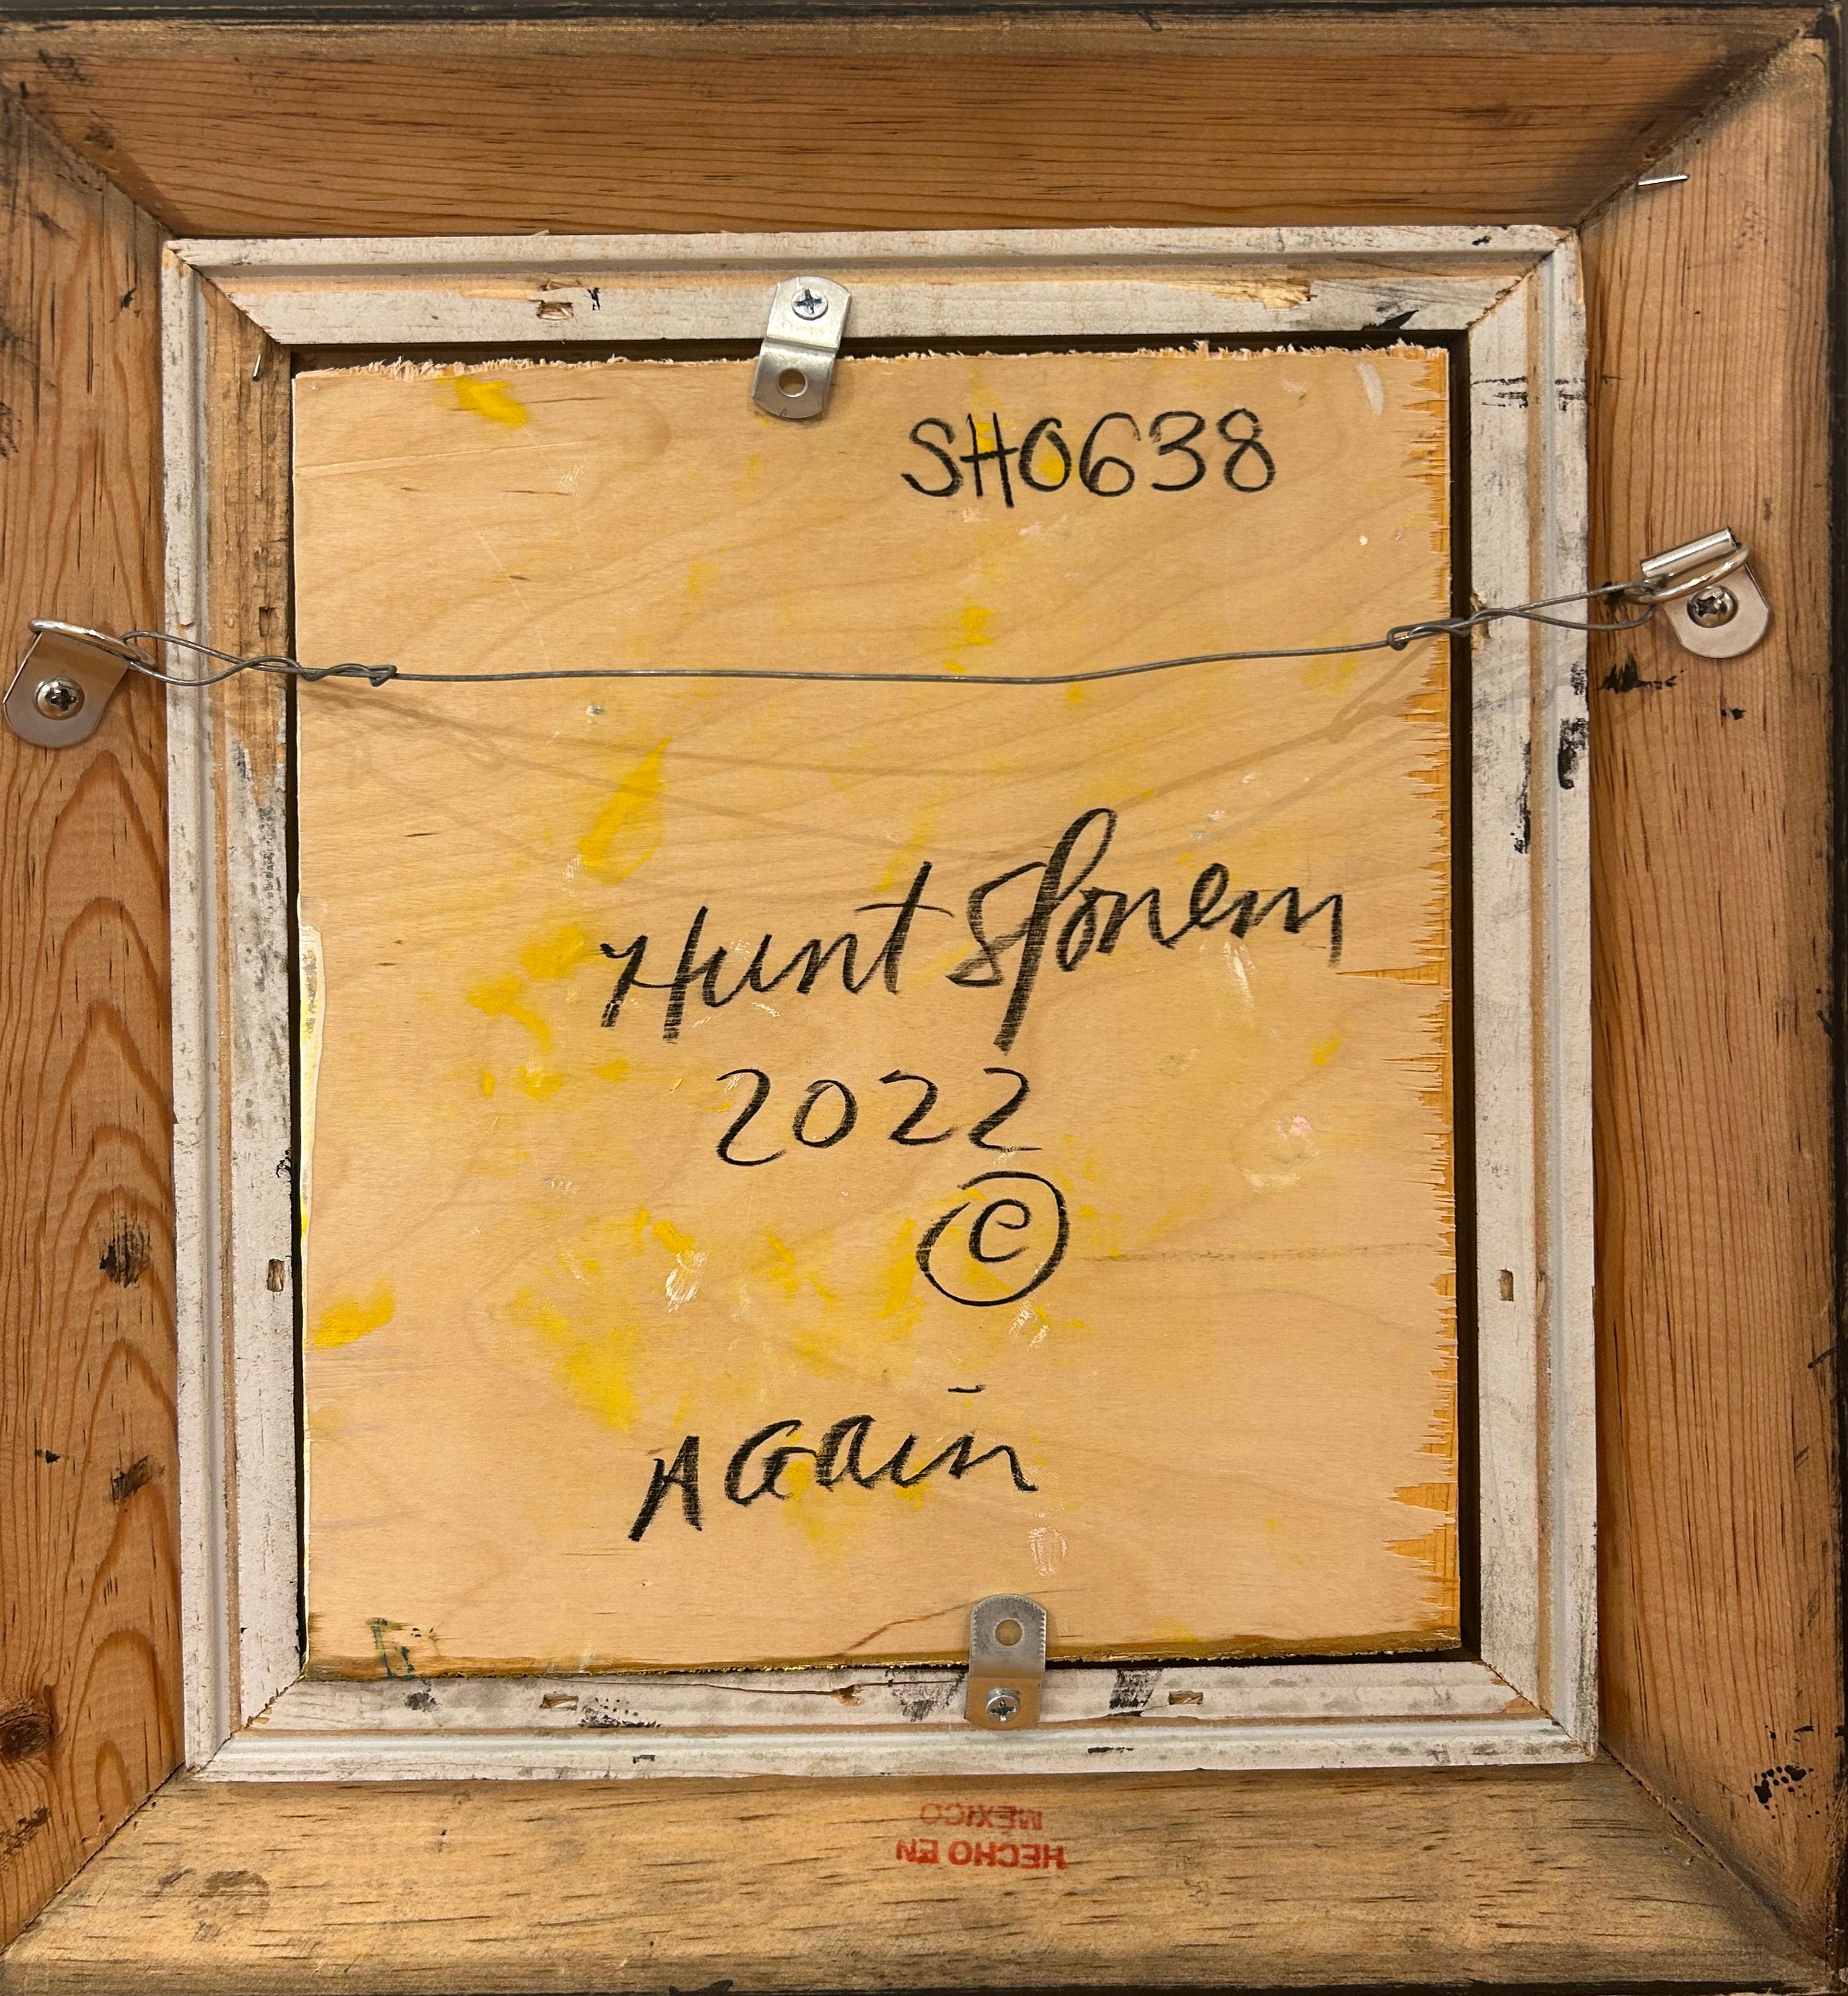 SH0638
Hunt Slonem
2022
©
AGain
HECHO EN
MÉXICO